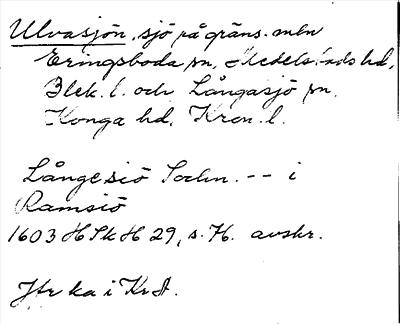 Ulvasjön, sjö på gräns. mln
Eringsboda sn, Medelstads hd,
Blek. l. och Långasjö sn.
Konga hd, Kron. l.
Långesiö Sochn. -- i
Ramsiö
1603 H Sk H 29, s. 76. avskr.
Jfr ka i KrA.